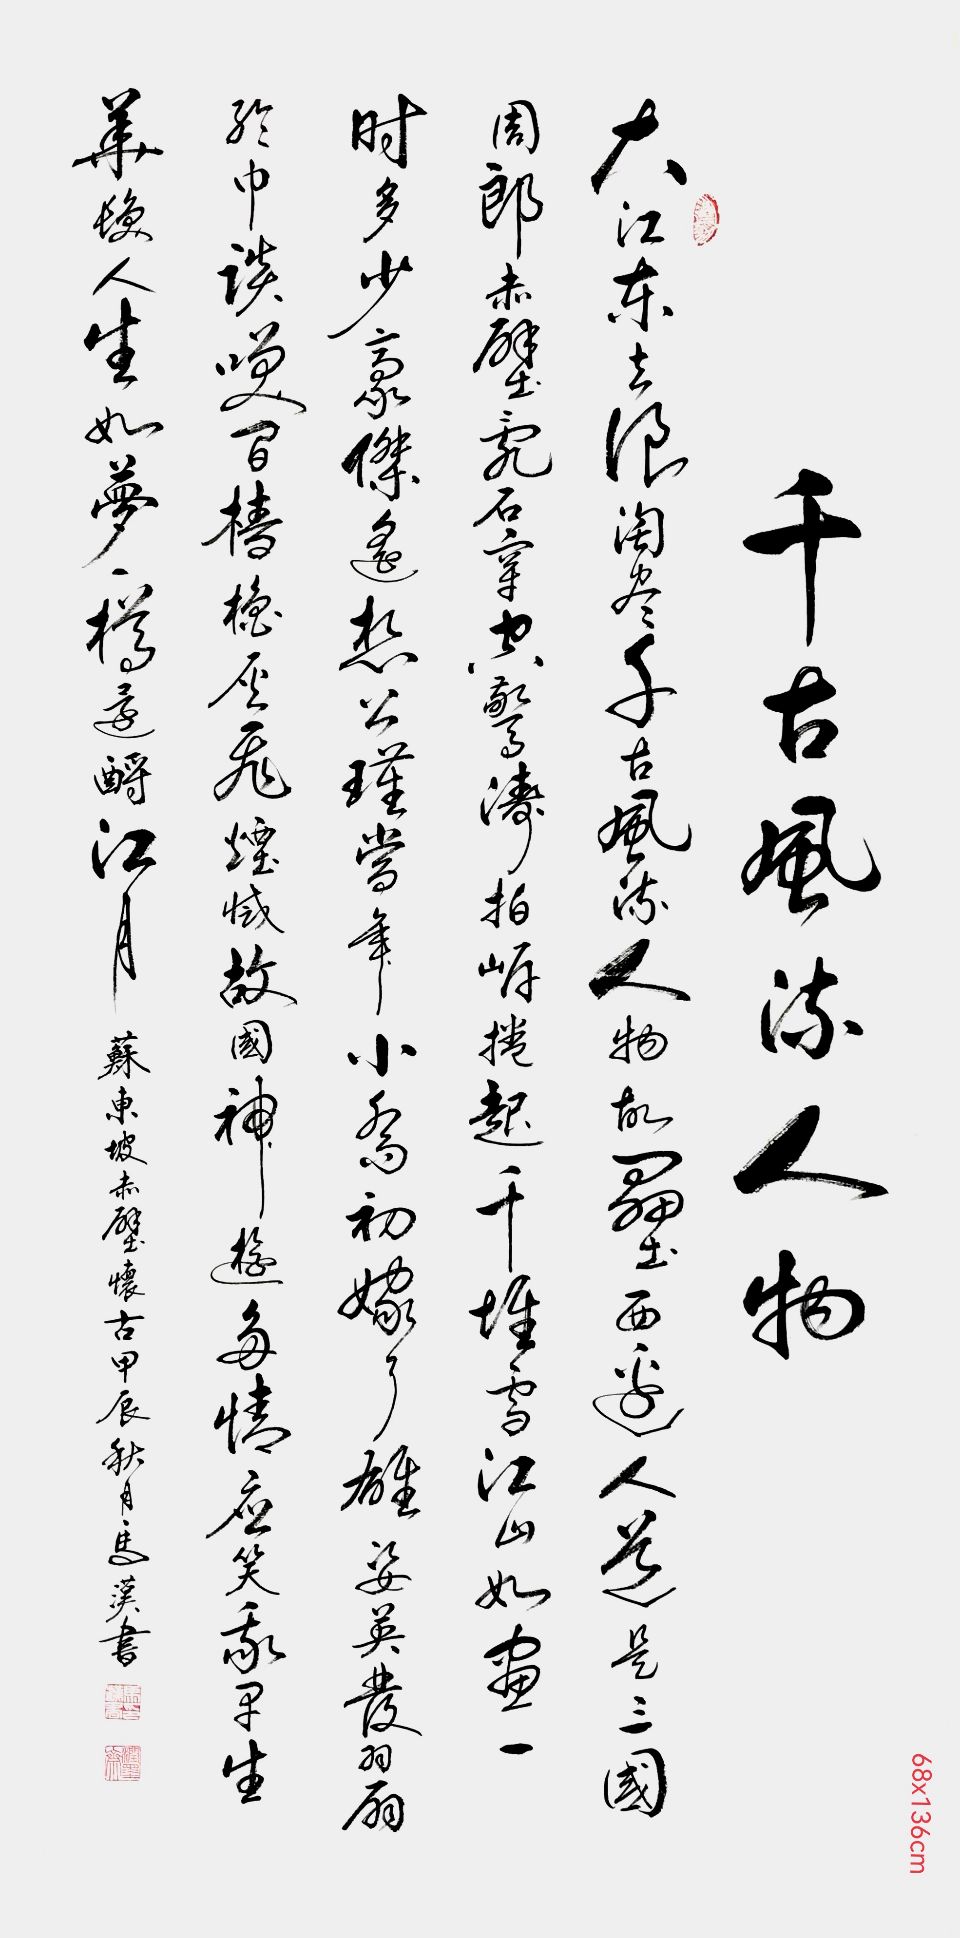 千古風流人物
大江东去浪淘尽千古風流人物故壘西邊人道是三國
周郎赤壁亂石穿空驚濤拍岸捲起千堆雪江山如畫一
时多少豪傑遙想公瑾當年小喬初嫁了雄姿英發羽扇
綸巾談笑間檣櫓灰飛煙滅故國神遊多情应笑我早生
華髮人生如夢一樽還酹江月 蘇東坡赤壁懷古甲辰秋月馬漢書
68x136cm